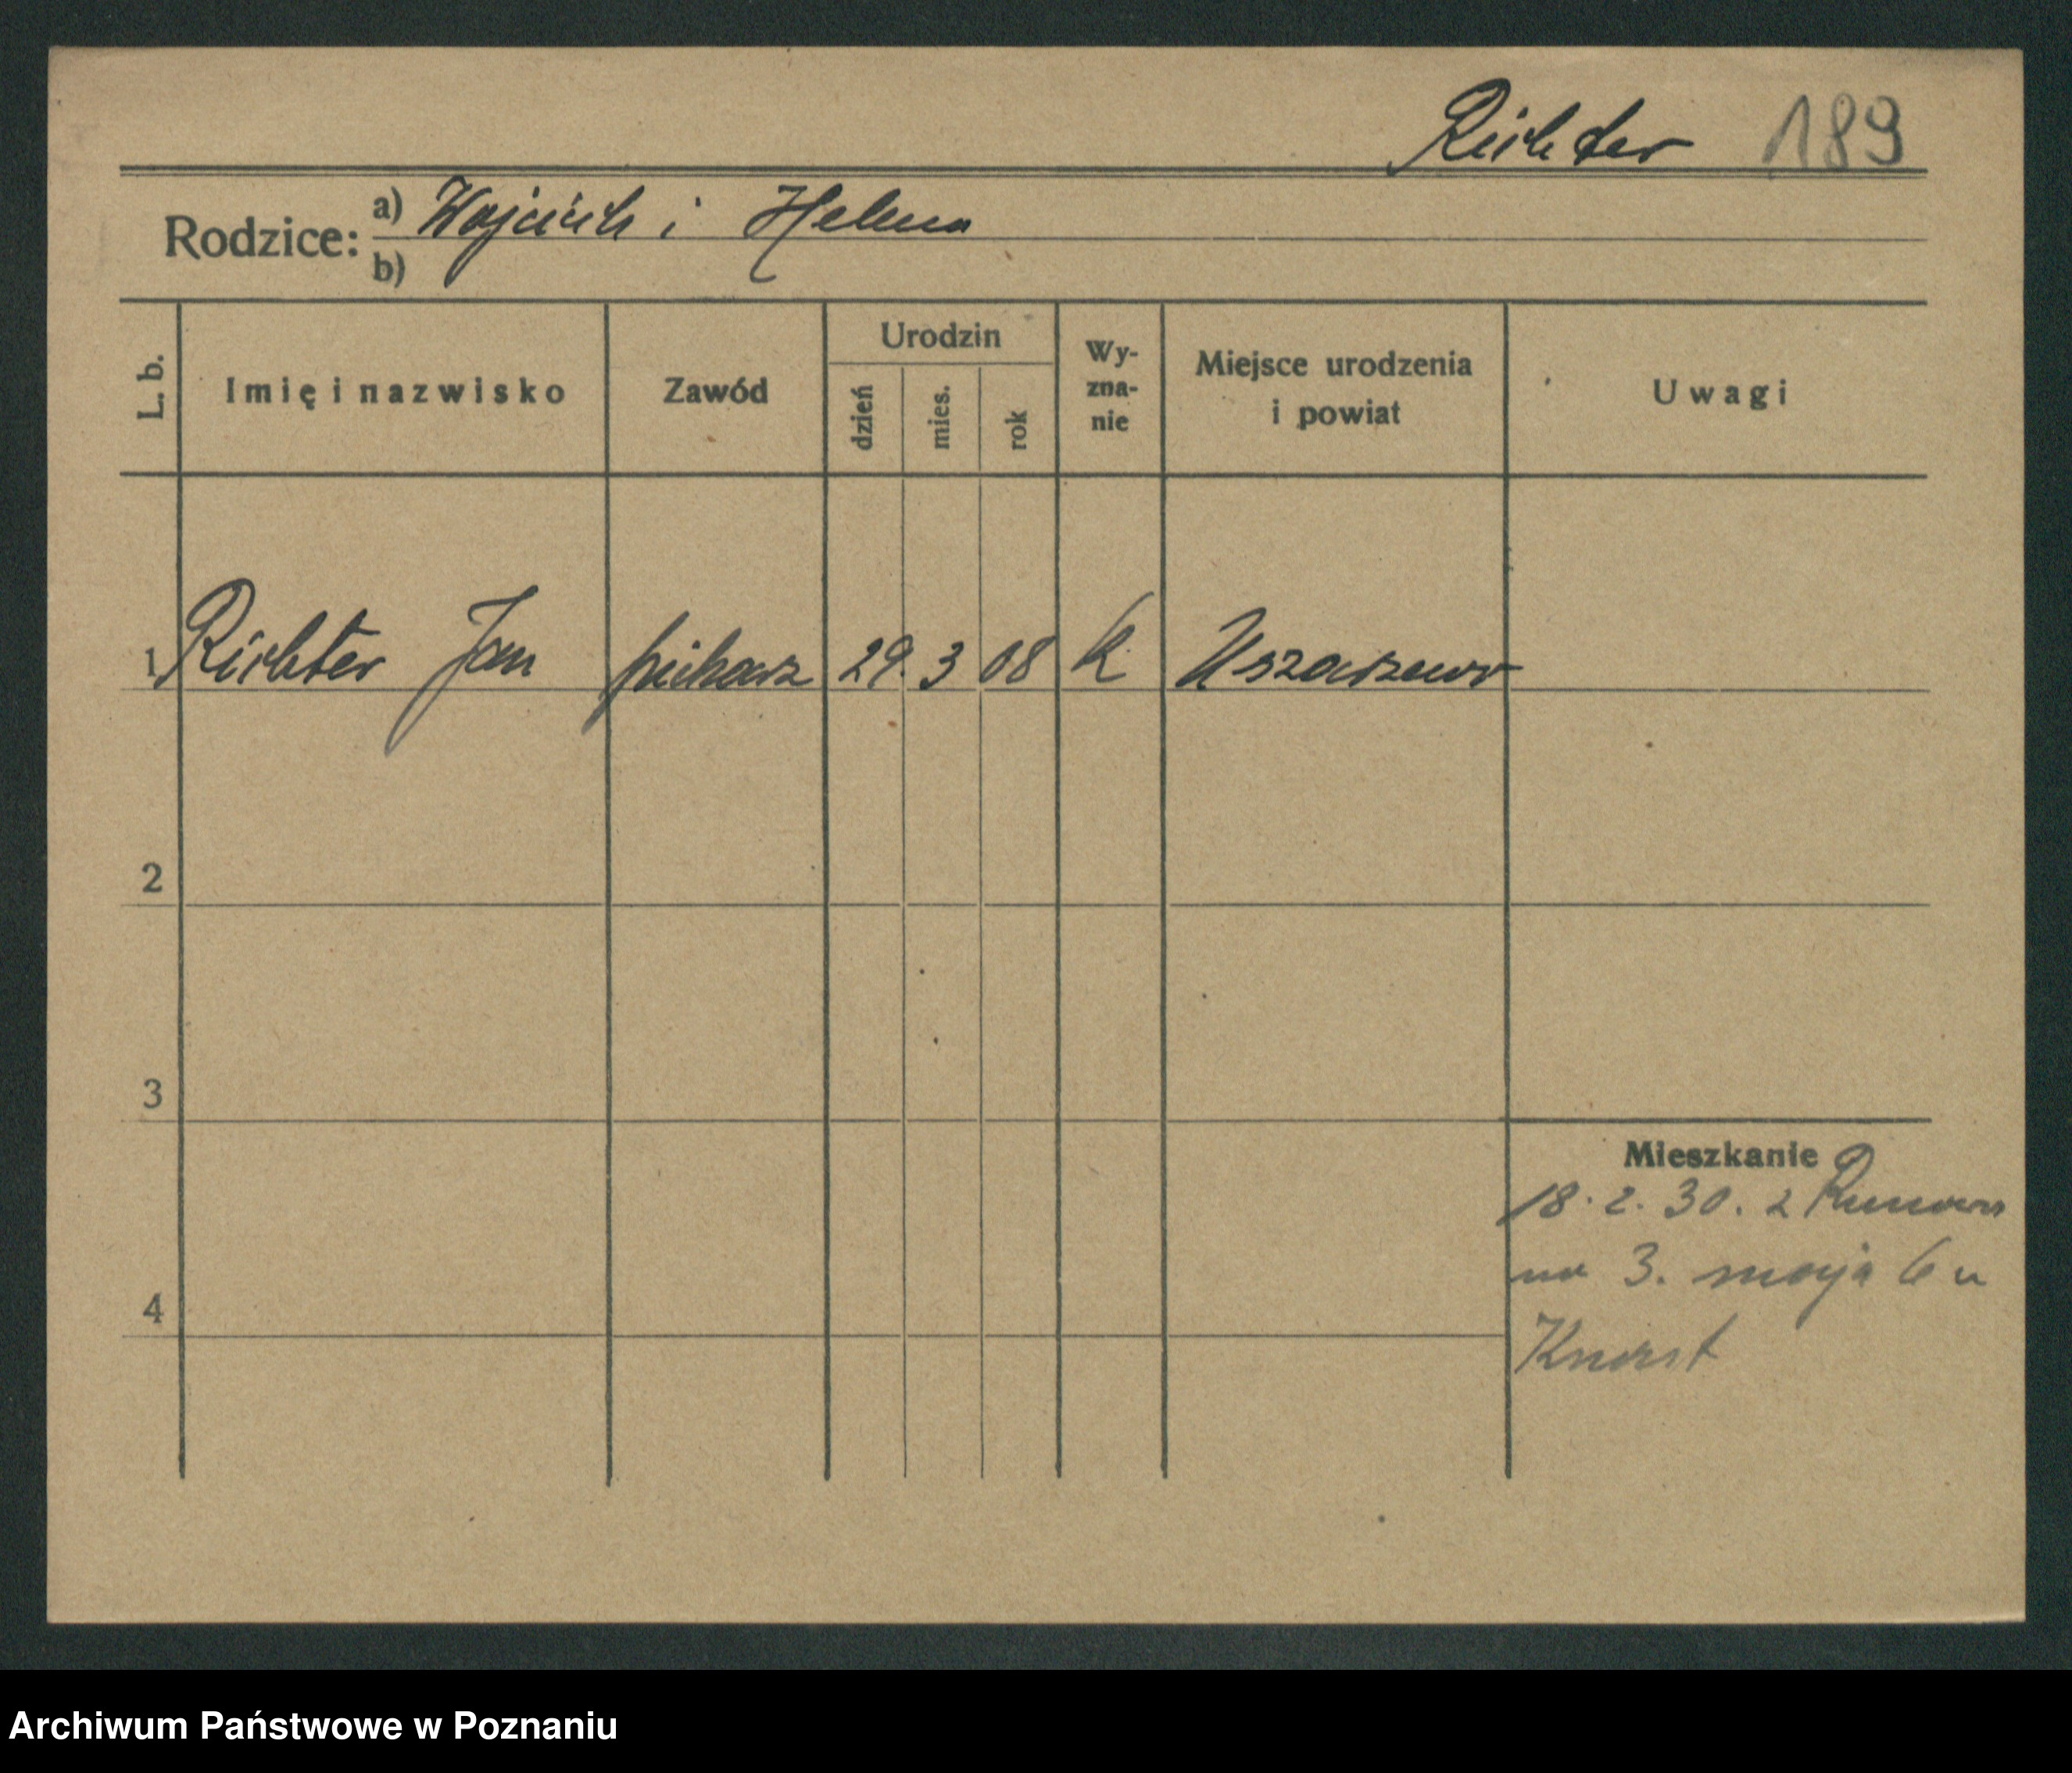 Richter 189
Rodzice: a) Wojciech i Helena
b)
L. b. Imię i nazwisko Zawód Urodzin dzień mies. rok Wyzna-nie Miejsce urodzenia i powiat Uwagi
1 Richter Jan piekarz 29. 3 08 k. Uszarzewo
2
3
Mieszkanie
18. 2. 30. z Runowa
na 3. maja 6 u
4
Knast
Archiwum Państwowe w Poznaniu